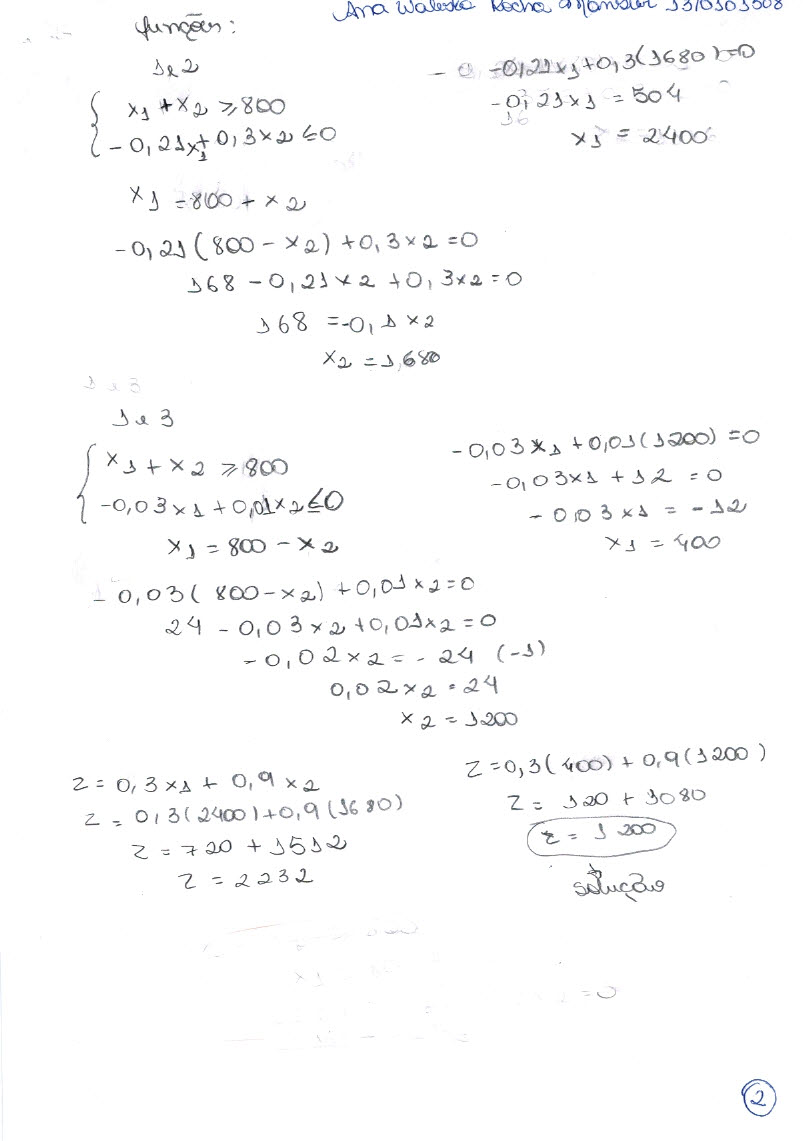 Ana Waleska Rocha
funções:
1 e 2
x1 + x2 ≥ 800
-0,21x1 + 0,3x2 ≤ 0
x1 = 800 + x2
-0,21(800 - x2) + 0,3x2 = 0
168 - 0,21x2 + 0,3x2 = 0
168 = -0,1x2
x2 = 1,680
-0,21x1 + 0,3(1680) = 0
-0,21x1 = 504
x1 = 2400
1 e 3
1 e 3
x1 + x2 ≥ 800
-0,03x1 + 0,01x2 ≤ 0
x1 = 800 - x2
-0,03(800 - x2) + 0,01x2 = 0
24 - 0,03x2 + 0,01x2 = 0
-0,02x2 = -24 (-1)
0,02x2 = 24
x2 = 1200
-0,03x1 + 0,01(1200) = 0
-0,03x1 + 12 = 0
-0,03x1 = -12
x1 = 400
Z = 0,3x1 + 0,9x2
Z = 0,3(2400) + 0,9(1680)
Z = 720 + 1512
Z = 2232
Z = 0,3(400) + 0,9(1200)
Z = 120 + 1080
Z = 1200
solução
2